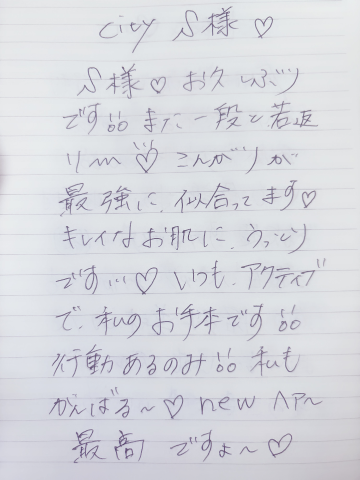 city S様♡
S様♡お久しぶり
です!!また一段と若返
りm♡こんがりが
最強に、似合ってます♡
キレイなお肌に、うっとり
です…♡いつも、アクティブ
で、私のお手本です!!
行動あるのみ!!私も
がんばる〜♡new ヘアー
最高ですょ〜♡